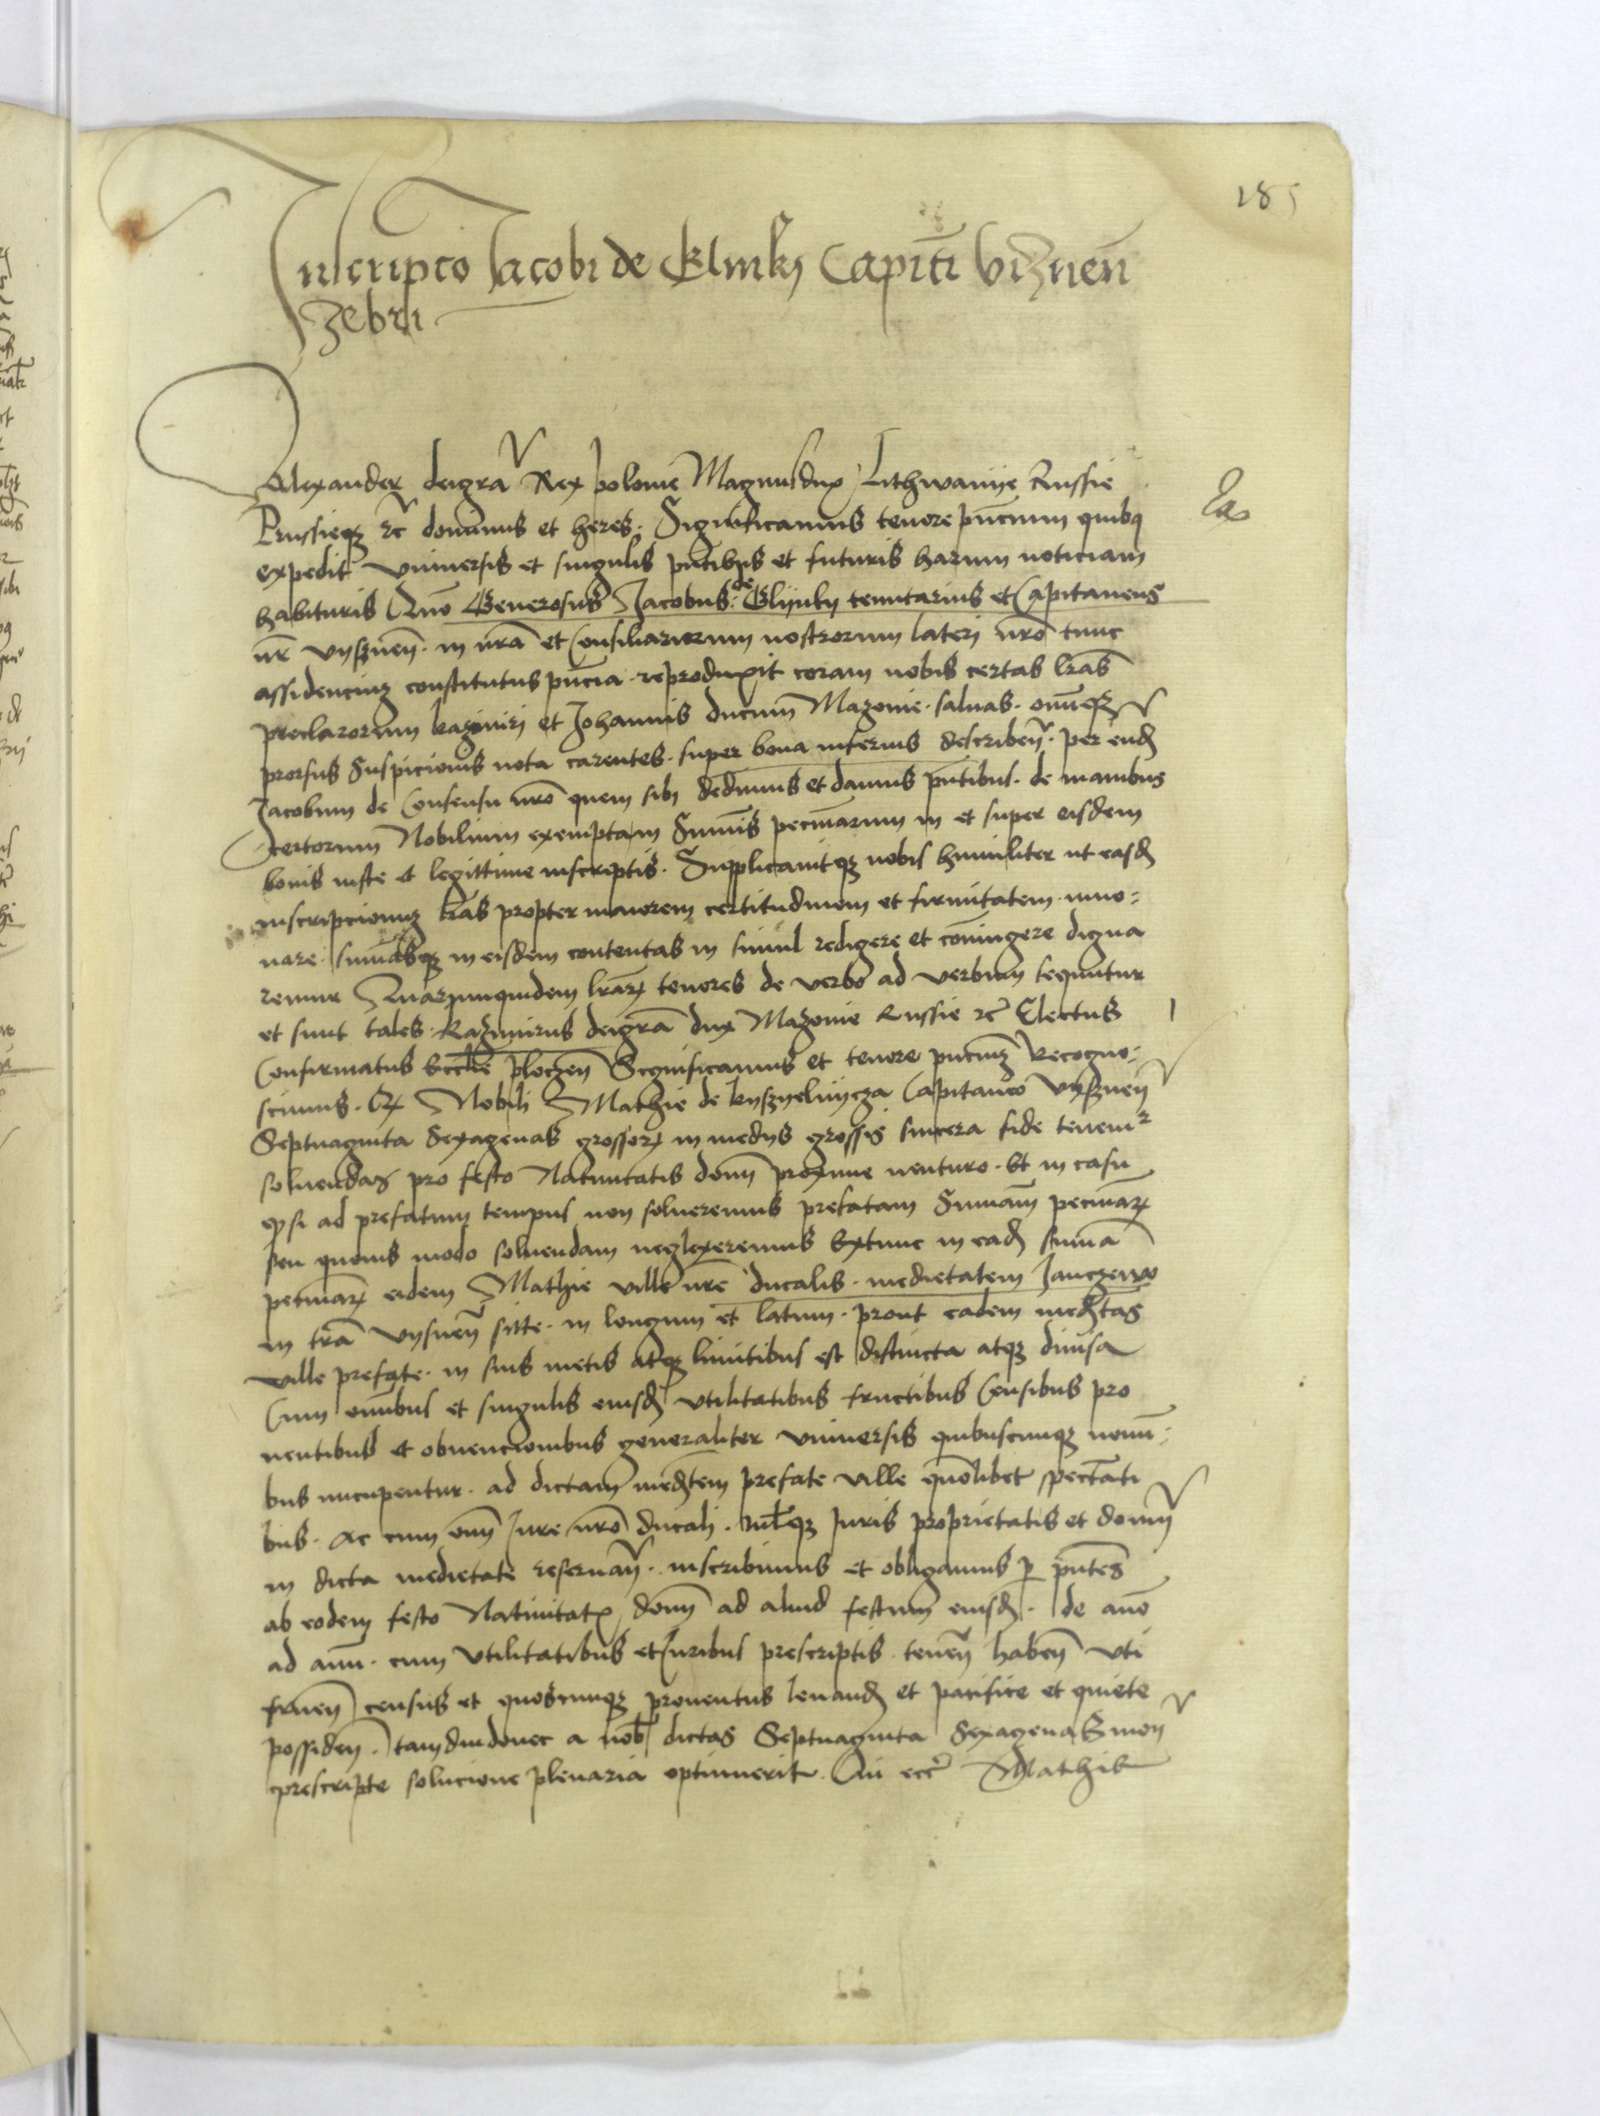 185
Inscripco Jacobi de Glinky Capiti Viznen
Zebri
Alexander deigra Rex polonie Magnusdux Lithwanije Russie
Prussieqz rc dominus et heres. Significamus tenore pncium quibq
expedit universis et singulis pntibus et futuris harum noticiam
habituris Quo Generosus Jacobus de Glijnky tenutarius et Capitaneus
nr vijsznen. in nra et Consiliariorum nostrorum lateri nro tunc
assidenciuz constitutus pncia reproduxit coram nobis certas lras
preclarorum kazimiri et Johannis ducum Mazovie. salvas. omneqz
prorsus suspicionis nota carentes. super bona inferius describen. per eund
Jacobum de Consensu nro quem sibi dedimus et damus pntibus. de manibus
certorum Nobilium exemptam Summis pecuniarum in et super eisdem
bonis iuste et legittime inscriptis. Supplicavitqz nobis humiliter ut easd
inscripcionuz lras propter maiorem certitudinem et firmitatem inno-
vare. summasqz in eisdem contentas in simul redigere et coniungere digna
remur Quarumquidem lrarz tenores de verbo ad verbum sequntur
et sunt tales. Kazimirus deigra dux Mazovie Russie rc Electus
Confirmatus Ecclie plocen Significamus et tenore pnciuz Recogno-
scimus. Qz Nobili Mathie de Capitaneo Vysznen
Septuaginta sexagenas grossorz in medijs grossis sincera fide tenemr
solvendas pro festo Nativitatis domi proxime venturo. Et in casu
qz si ad prefatum tempus non solveremus prefatam Summam pecuniarz
seu quovis modo solvendam neglexeremus Extunc in ead summa
pecuniarz eidem Mathie ville nre ducalis. medietatem Janczewo
in tra vysnen sitte. in longum et latum. prout eadem medtas
ville prefate. in suis metis atqz limitibus est distincta atqz divisa
Cum omnibus et singulis eiusd utilitatibus fructibus Censibus pro
ventibus et obvencionibus generaliter universis quibuscunqz nomi-
bus nucupentur. ad dictam medtem prefate ville quolibet spectati
bus. Ac cum omi Jure nro ducali. nilqz Juris proprietatis et domi
in dicta medietate reservan. inscribimus et obligamus p pntes
ab eodem festo Nativitatz domi ad aliud festum eiusd. de ano
ad anu. cum utilitatibus et Juribus prescriptis. tenen haben uti
fruen census et quoscunqz proventus levand et pacifice et quiete
possiden. tamdiudonec a nob dictas Septuaginta sexagenas mon
prescripte solucione plenaria optinuerit. Mathie